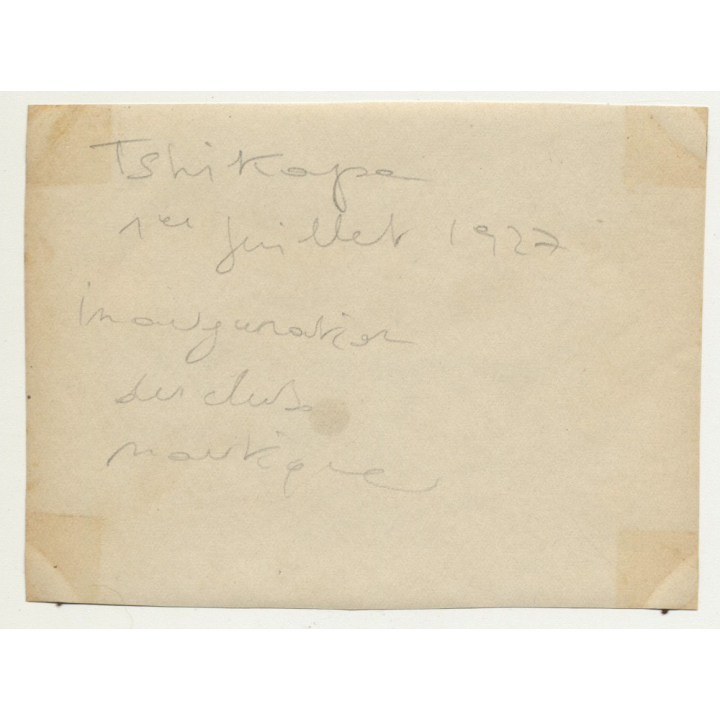 Tshikapa
1er juillet 1927
inauguration
du club
nautique